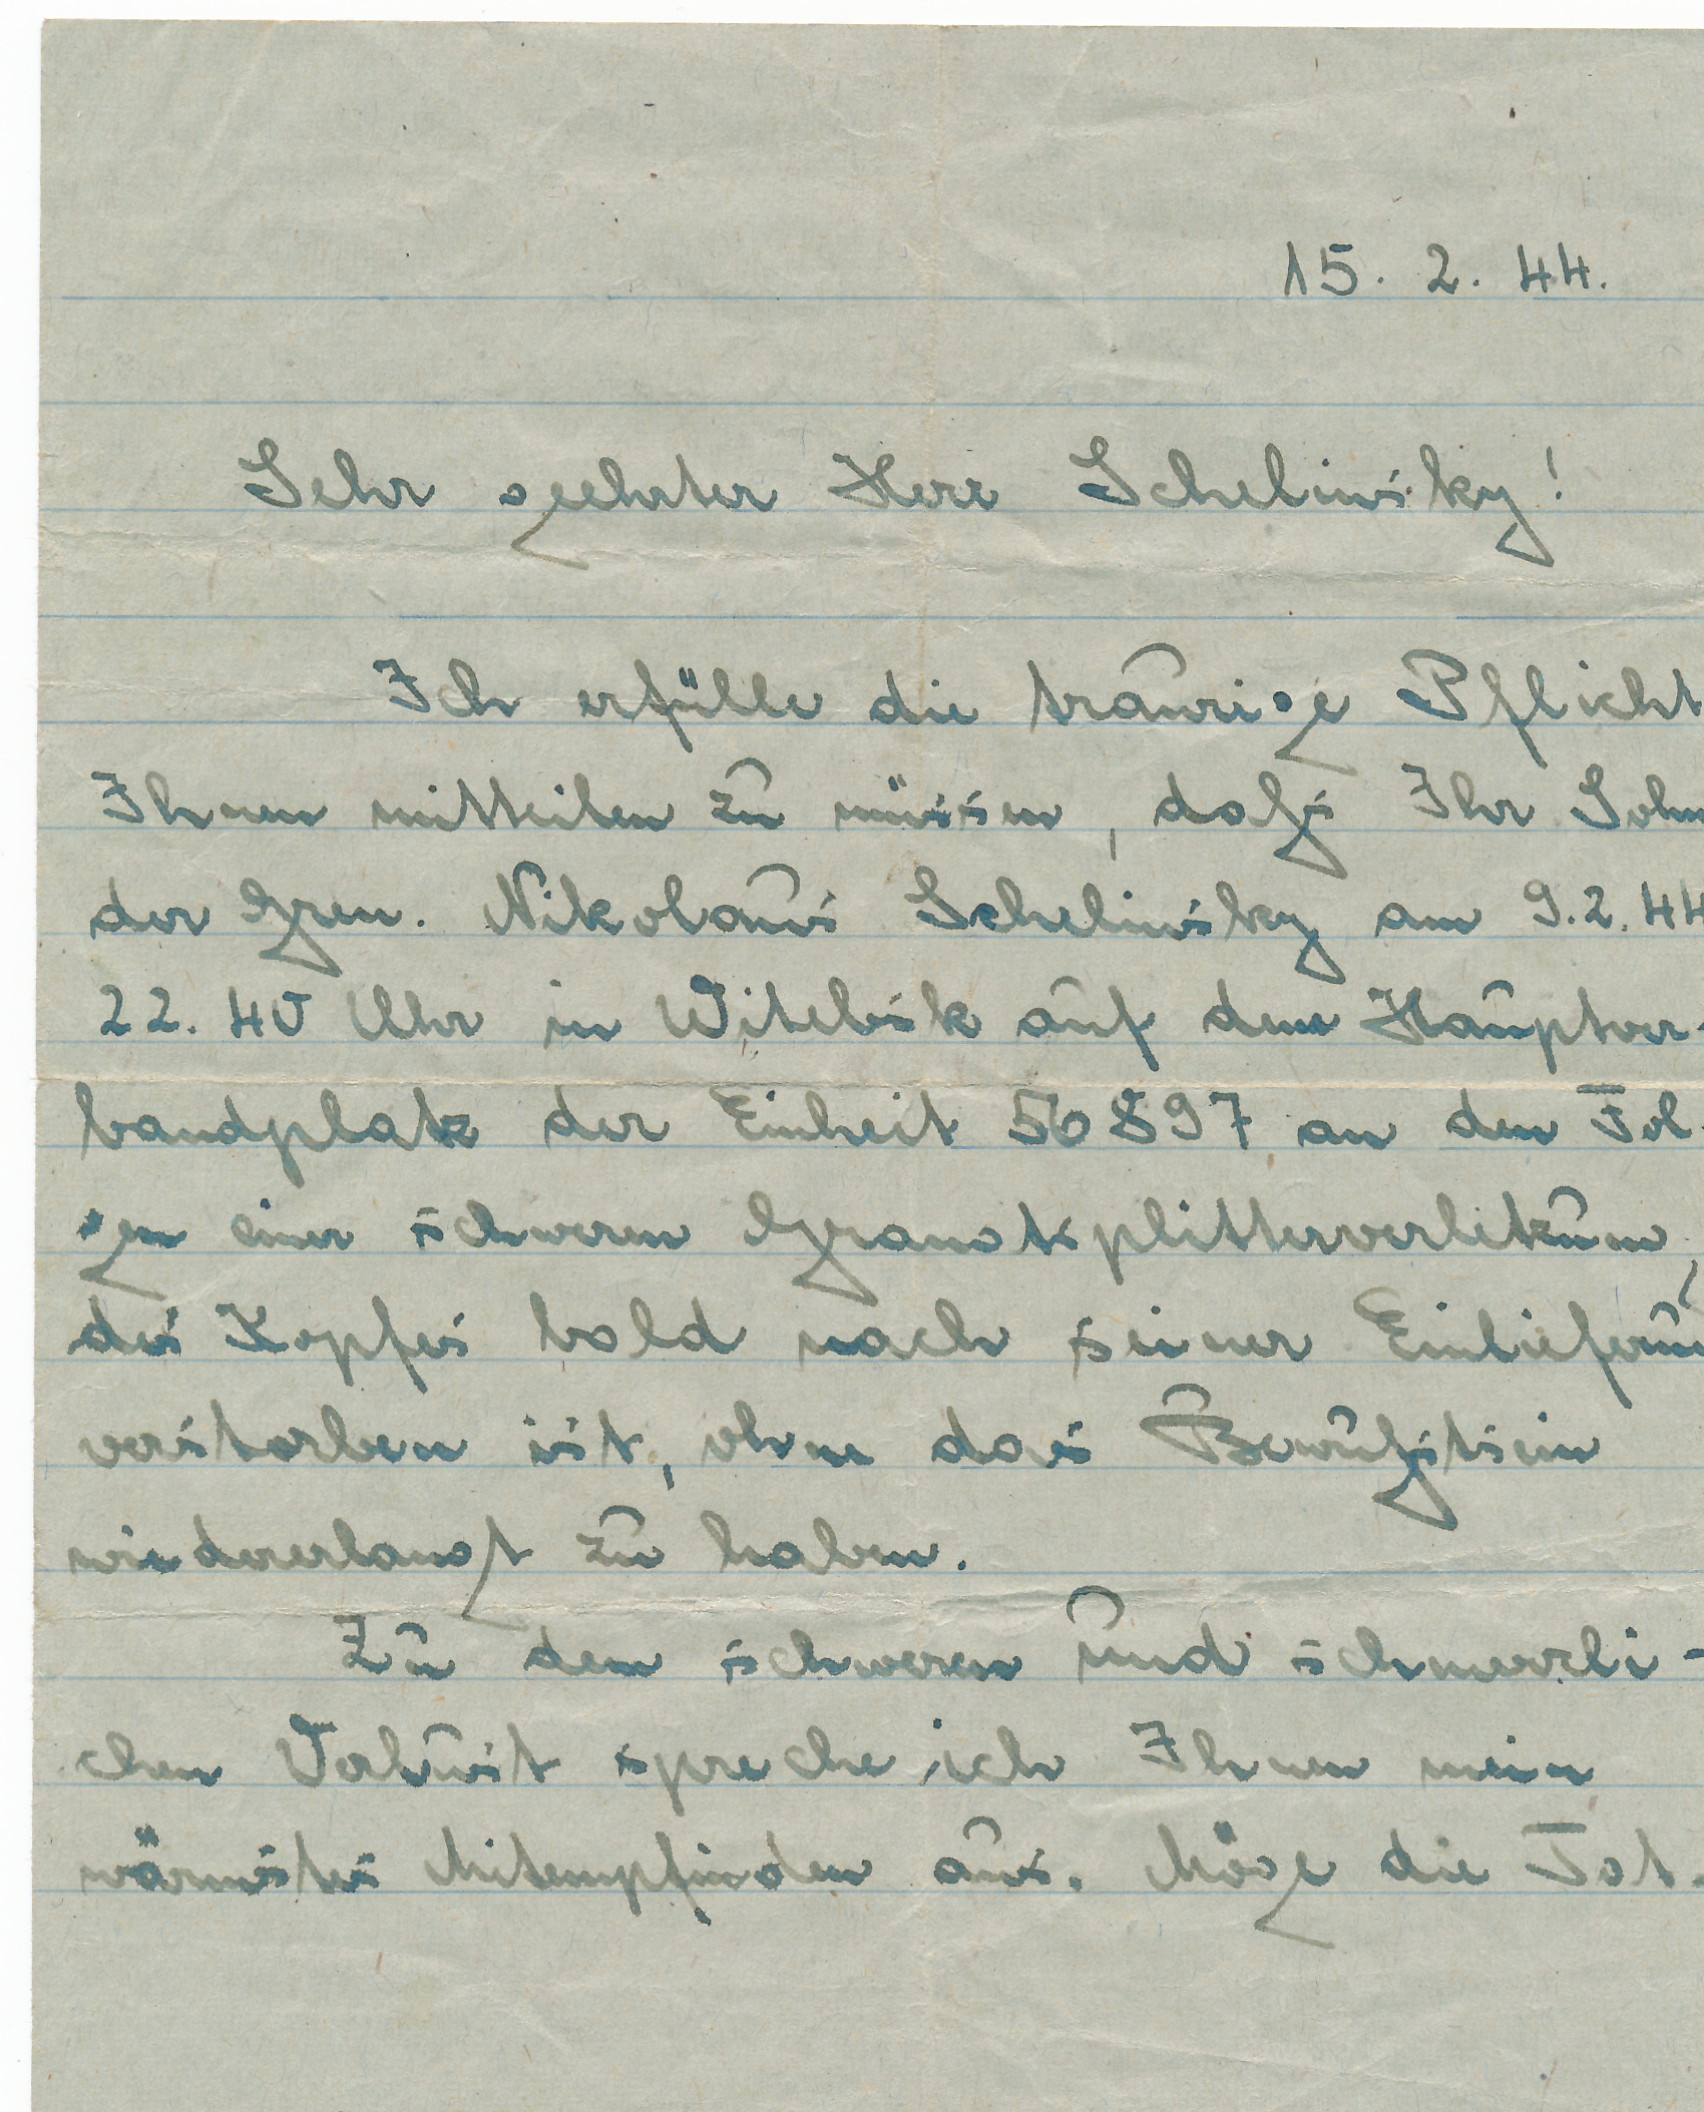 15. 2. 44.
Sehr geehrter Herr Schelinsky!
Ich erfülle die traurige Pflicht
Ihnen mitteilen zu müssen, daß Ihr Sohn
der Gren. Nikolaus Schelinsky am 9.2.44
22.40 Uhr in Witebsk auf dem Hauptver-
bandplatz der Einheit 56897 an den Fol-
gen einer schweren Granatsplitterverletzung
des Kopfes bald nach seiner Einlieferun
verstorben ist, ohne das Bewußtsein
wiedererlangt zu haben.
Zu dem schweren und schmerzli-
chen Verlust spreche ich Ihnen mein
wärmstes Mitempfinden aus. Möge die Tat-